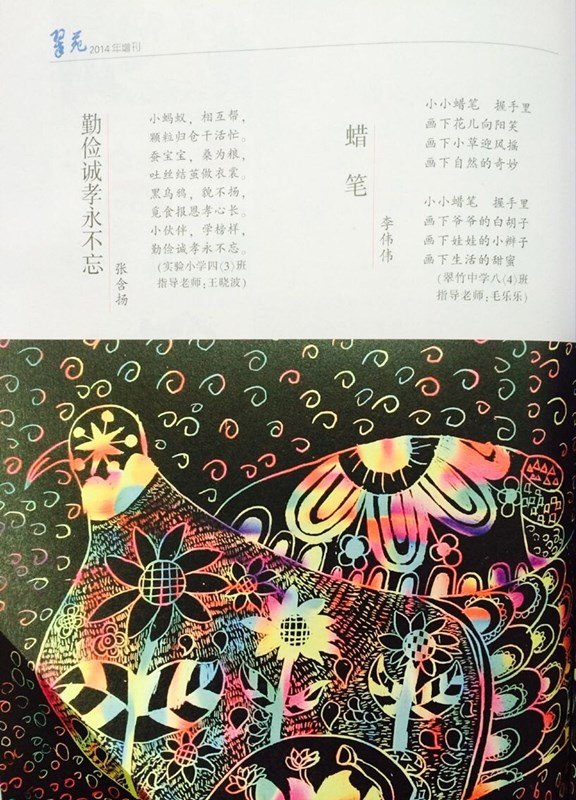 翠苑 2014年增刊
勤俭诚孝永不忘
张含扬
小蚂蚁，相互帮，
颗粒归仓干活忙。
蚕宝宝，桑为粮，
吐丝结茧做衣裳。
黑乌鸦，貌不扬，
觅食报恩孝心长。
小伙伴，学榜样，
勤俭诚孝永不忘。
(实验小学四(3)班
指导老师:王晓波)
蜡笔
李伟伟
小小蜡笔 握手里
画下花儿向阳笑
画下小草迎风摇
画下自然的奇妙
小小蜡笔 握手里
画下爷爷的白胡子
画下娃娃的小辫子
画下生活的甜蜜
(翠竹中学八(4)班
指导老师:毛乐乐)